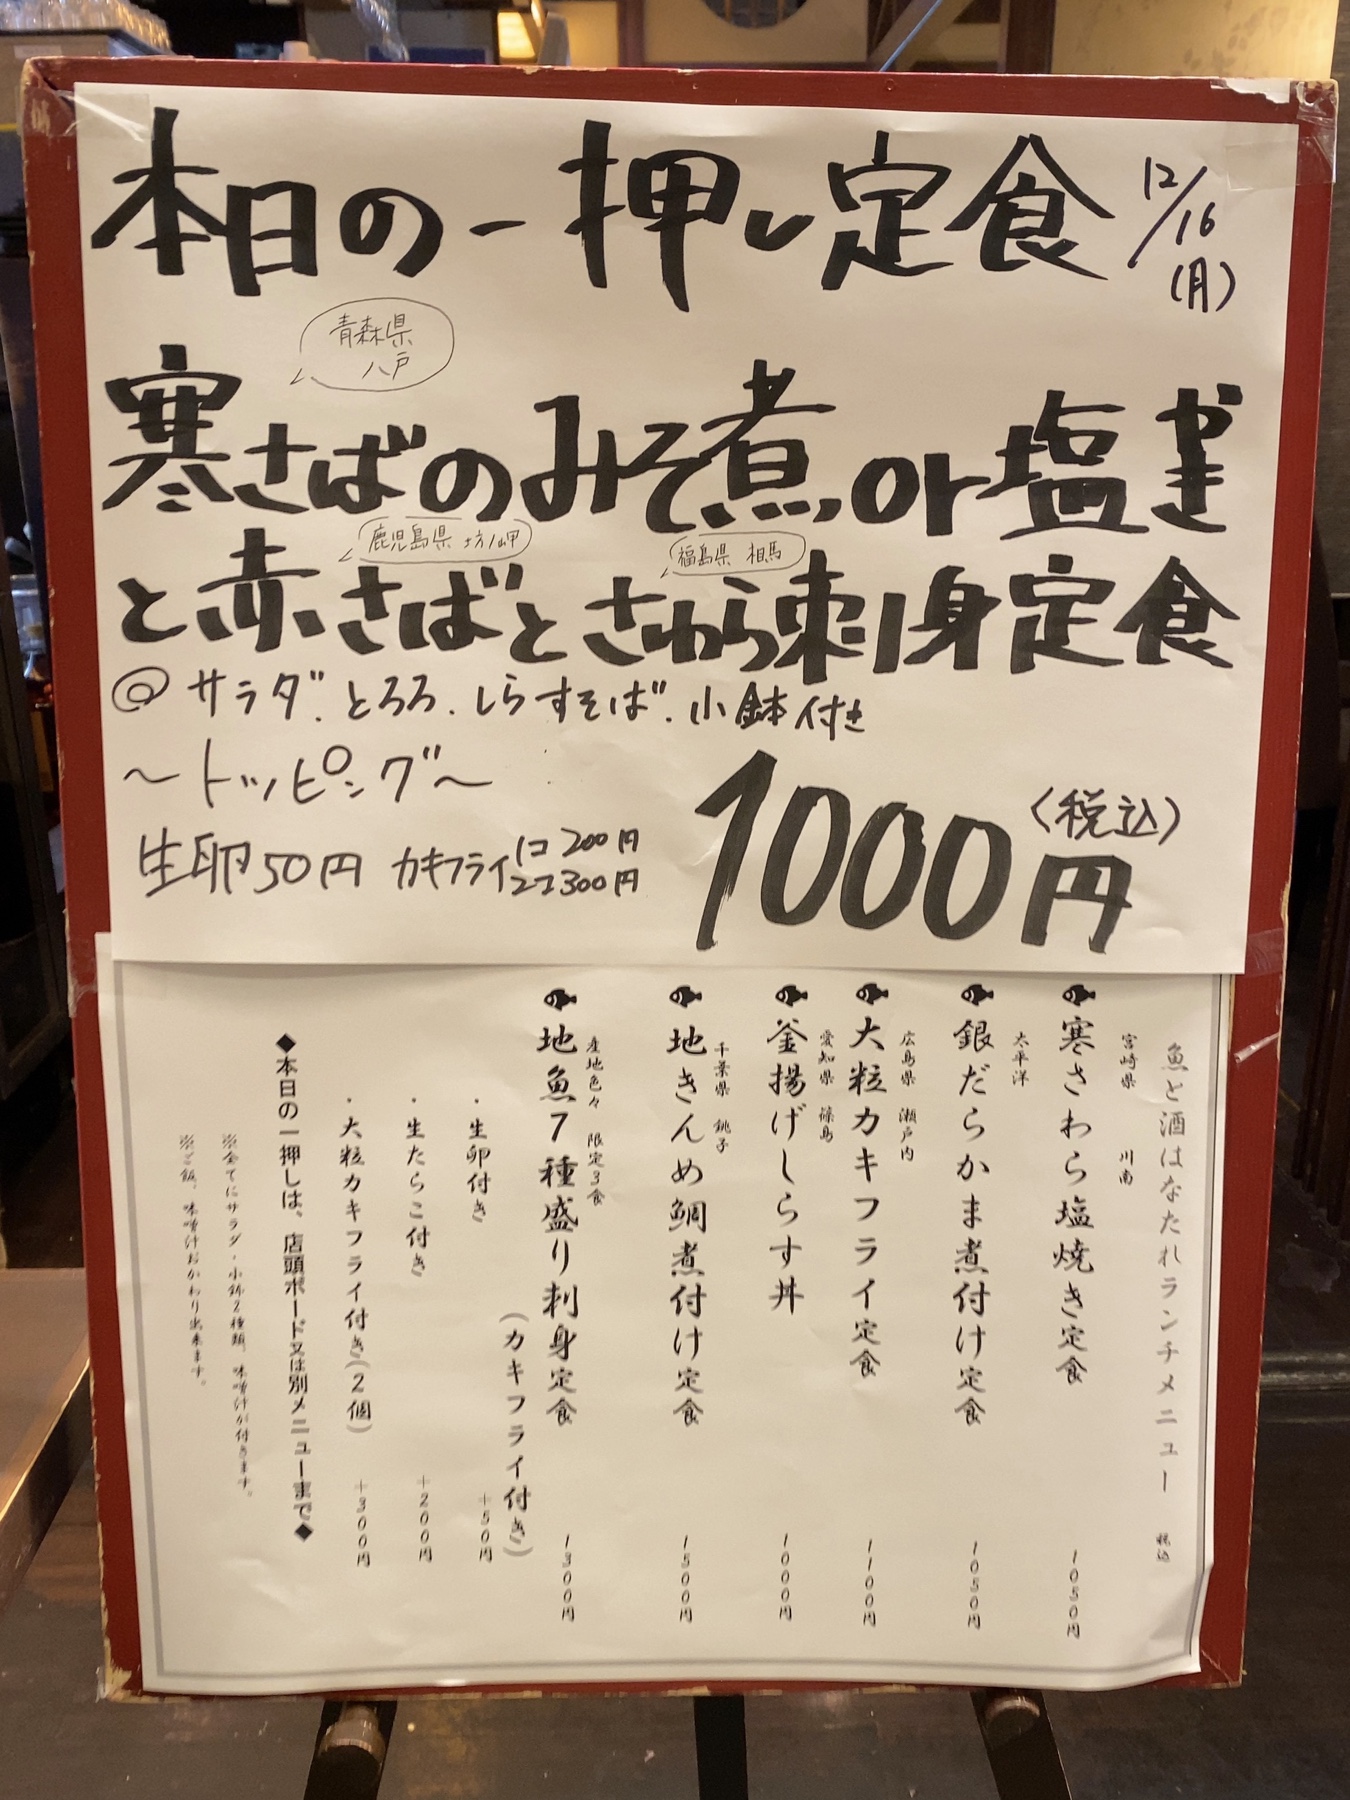 本日の一押し定食
12/16
(月)
青森県
八戸
寒さばのみそ煮or塩焼
鹿児島県 坊ノ岬
福島県 相馬
と赤さばとさわら刺身定食
@サラダ.とろろ.しらすそば.小鉢付き
～トッピング～
生卵50円 カキフライ 1コ 200円
2コ 300円
1000円
(税込)
魚と酒はなたれランチメニュー 税込
宮崎県 川南
寒さわら塩焼き定食 1050円
太平洋
銀だらかま煮付け定食 1050円
広島県 瀬戸内
大粒カキフライ定食 1100円
愛知県 篠島
釜揚げしらす丼 1000円
千葉県 銚子
地きんめ鯛煮付け定食 1500円
産地色々 限定3食
地魚7種盛り刺身定食 1300円
(カキフライ付き)
・生卵付き +50円
・生たらこ付き +200円
・大粒カキフライ付き(2個) +300円
◆本日の一押しは、店頭ボード又は別メニューまで◆
※全てにサラダ・小鉢2種類、味噌汁が付きます。
※ご飯、味噌汁おかわり出来ます。